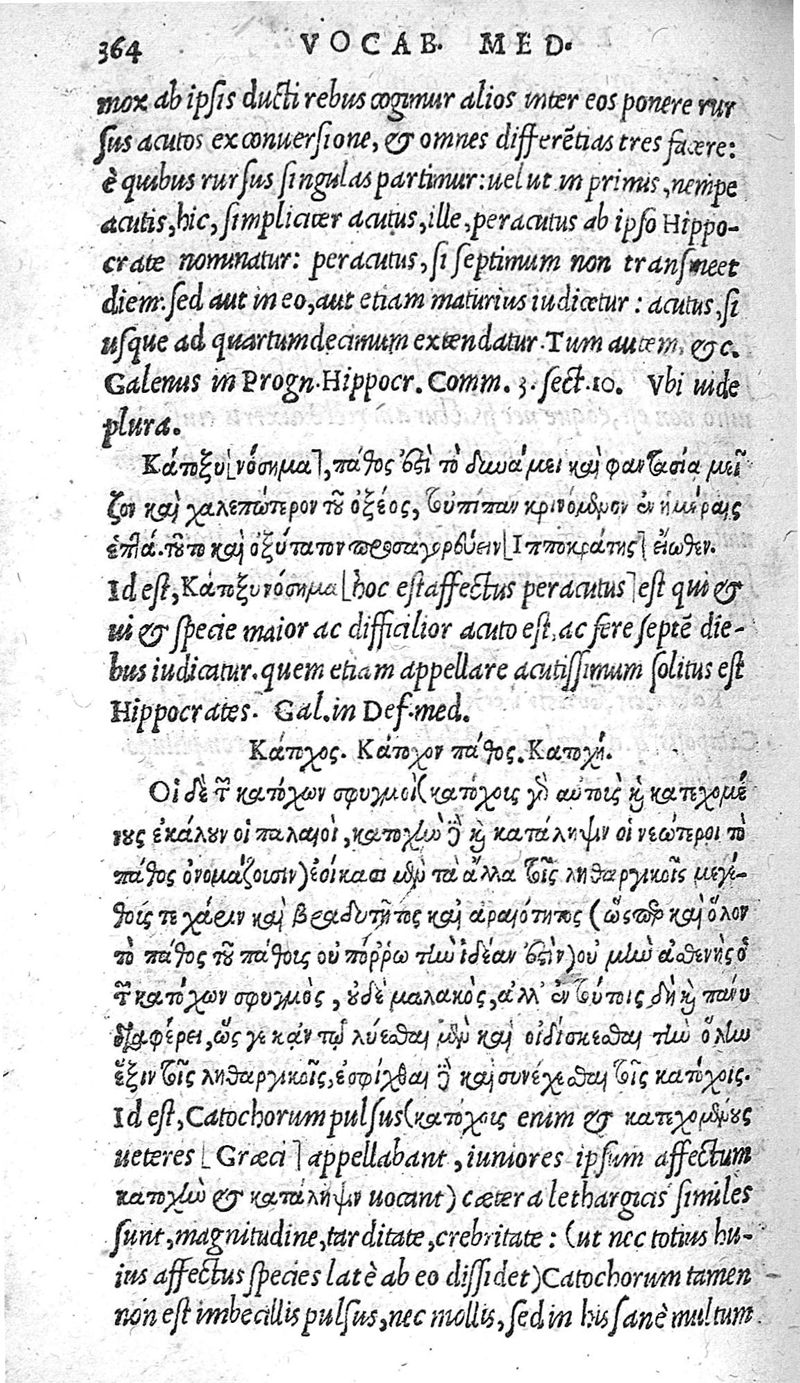 364 VOCAB. MED.
mox ab ipsis ducti rebus cogimur alios inter eos ponere rur
sus acutos ex conuersione, & omnes differẽtias tres facere:
è quibus rursus singulas partimur: uelut in primis, nempe
acutis, hic, simpliciter acutus, ille, peracutus ab ipso Hippo-
crate nominatur: peracutus, si septimum non transmeet
diem. sed aut in eo, aut etiam maturius iudicetur: acutus, si
usque ad quartumdecimum extendatur. Tum autem, &c.
Galenus in Progn. Hippocr. Comm. 3. sect. 10. Vbi uide
plura.
Κάτοξυ[νόσημα], πάθος ἐστὶ τὸ δυνάμει καὶ φαντασία μεῖ
ζον καὶ χαλεπώτερον τοῦ ὀξέος, τοὐπίπαν κρινόμενον ἐν ἡμέραις
ἑπτά. τοῦτο καὶ ὀξύτατον προσαγορεύειν [Ιπποκράτης] εἴωθεν.
Id est, Κάτοξυ νόσημα [hoc est affectus peracutus] est qui &
ui & specie maior ac difficilior acuto est, ac fere septẽ die-
bus iudicatur. quem etiam appellare acutissimum solitus est
Hippocrates. Gal. in Def. med.
Κάτοχος. Κάτοχον πάθος. Κατοχή.
Οἱ δὲ τῶν κατόχων σφυγμοὶ (κατόχοις γὸ αὐτοὺς καὶ κατεχομέ
νους ἐκάλουν οἱ παλαιοὶ, κατοχὴν δὲ καὶ κατάληψιν οἱ νεώτεροι τὸ
πάθος ὀνομάζουσιν) ἐοίκασι μὲν τὰ ἄλλα τοῖς ληθαργικοῖς μεγέ-
θους τε χάριν καὶ βραδυτῆτος καὶ ἀραιότητος (ὥσπερ καὶ ὅλον
τὸ πάθος τοῦ πάθους οὐ πόῤῥω τὴν ἰδέαν ἐστὶν) οὐ μὴν ἀσθενής ὁ
τῶν κατόχων σφυγμὸς, οὐδὲ μαλακὸς, ἀλλ' ἐν τούτοις δὴ καὶ πάνυ
διαφέρει, ὥς γε κἀν τῷ λύεσθαι μὲν καὶ οἰδίσκεσθαι τὴν ὅλην
ἕξιν τοῖς ληθαργικοῖς, ἐσφίχθαι δὲ καὶ συνέχεσθαι τοῖς κατόχοις.
Id est, Catochorum pulsus (κατόχοις enim & κατεχομένους
ueteres [Græci] appellabant, iuniores ipsum affectum
κατοχὴν & κατάληψιν uocant) cætera lethargicis similes
sunt, magnitudine, tarditate, crebritate: (ut nec totius hu-
ius affectus species latè ab eo dissidet) Catochorum tamen
non est imbecillis pulsus, nec mollis, sed in his sanè multum